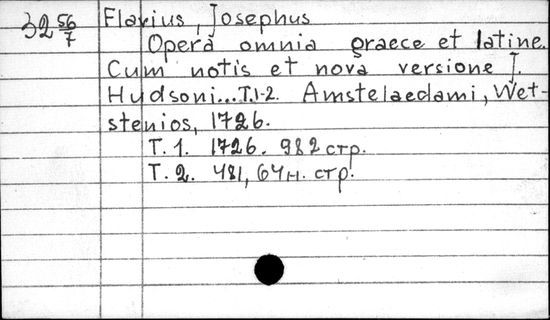 32 56/7
Flavius, Josephus
Opera omnia graece et latine.
Cum notis et nova versione J.
Hudsoni...T.1-2. Amstelaedami, Wet-
stenios, 1726.
T. 1. 1726. 982 стр.
T. 2. 481, 64 н. стр.